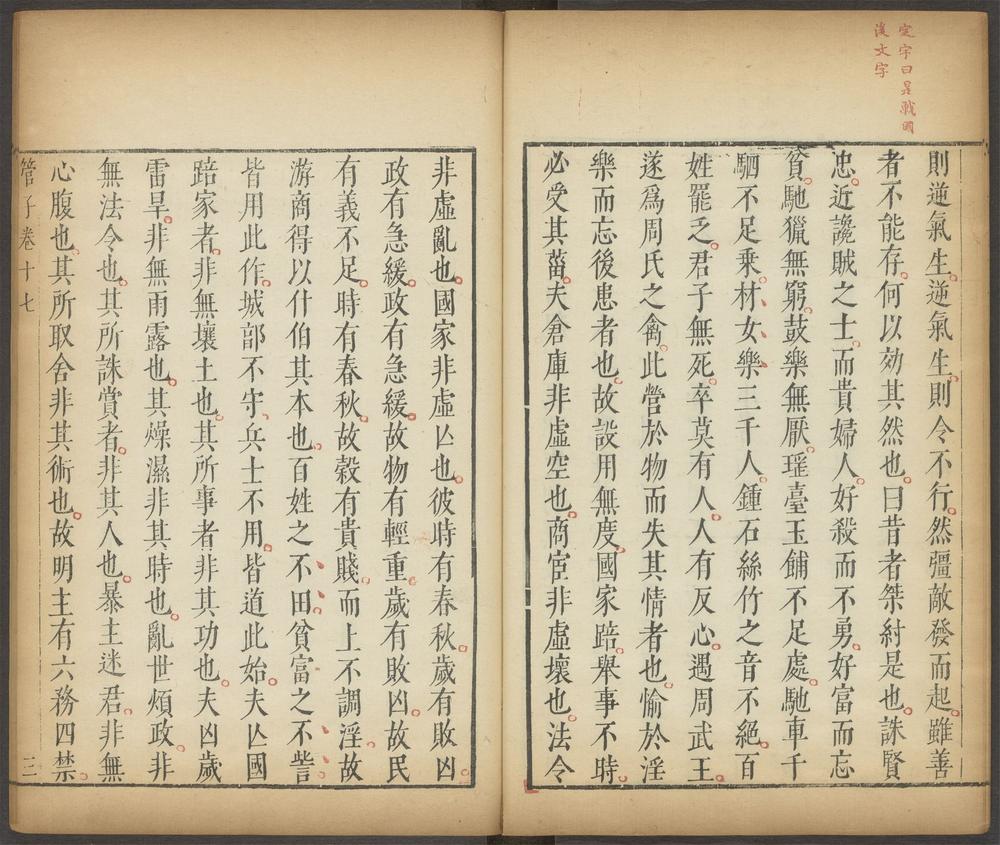 定宇曰是戰國
後文字
則逆氣生逆氣生則令不行然彊敵發而起雖善
者不能存何以効其然也曰昔者桀紂是也誅賢
忠近讒賊之士而貴婦人好殺而不勇好富而忘
貧馳獵無窮鼓樂無厭瑤臺玉餔不足處馳車千
駟不足乘材女樂三千人鍾石絲竹之音不絕百
姓罷乏君子無死卒莫有人人有反心遇周武王
遂爲周氏之禽此營於物而失其情者也愉於淫
樂而忘後患者也故設用無度國家踣舉事不時
必受其菑夫倉庫非虛空也商宦非虛壞也法令
非虛亂也國家非虛亾也彼時有春秋歲有敗凶
政有急緩政有急緩故物有輕重歲有敗凶故民
有義不足時有春秋故穀有貴賤而上不調淫故
游商得以什伯其本也百姓之不田貧富之不訾
皆用此作城郭不守兵士不用皆道此始夫亾國
踣家者非無壤土也其所事者非其功也夫凶歲
雷旱非無雨露也其燥濕非其時也亂世煩政非
無法令也其所誅賞者非其人也暴主迷君非無
心腹也其所取舍非其術也故明主有六務四禁
管子卷十七 三